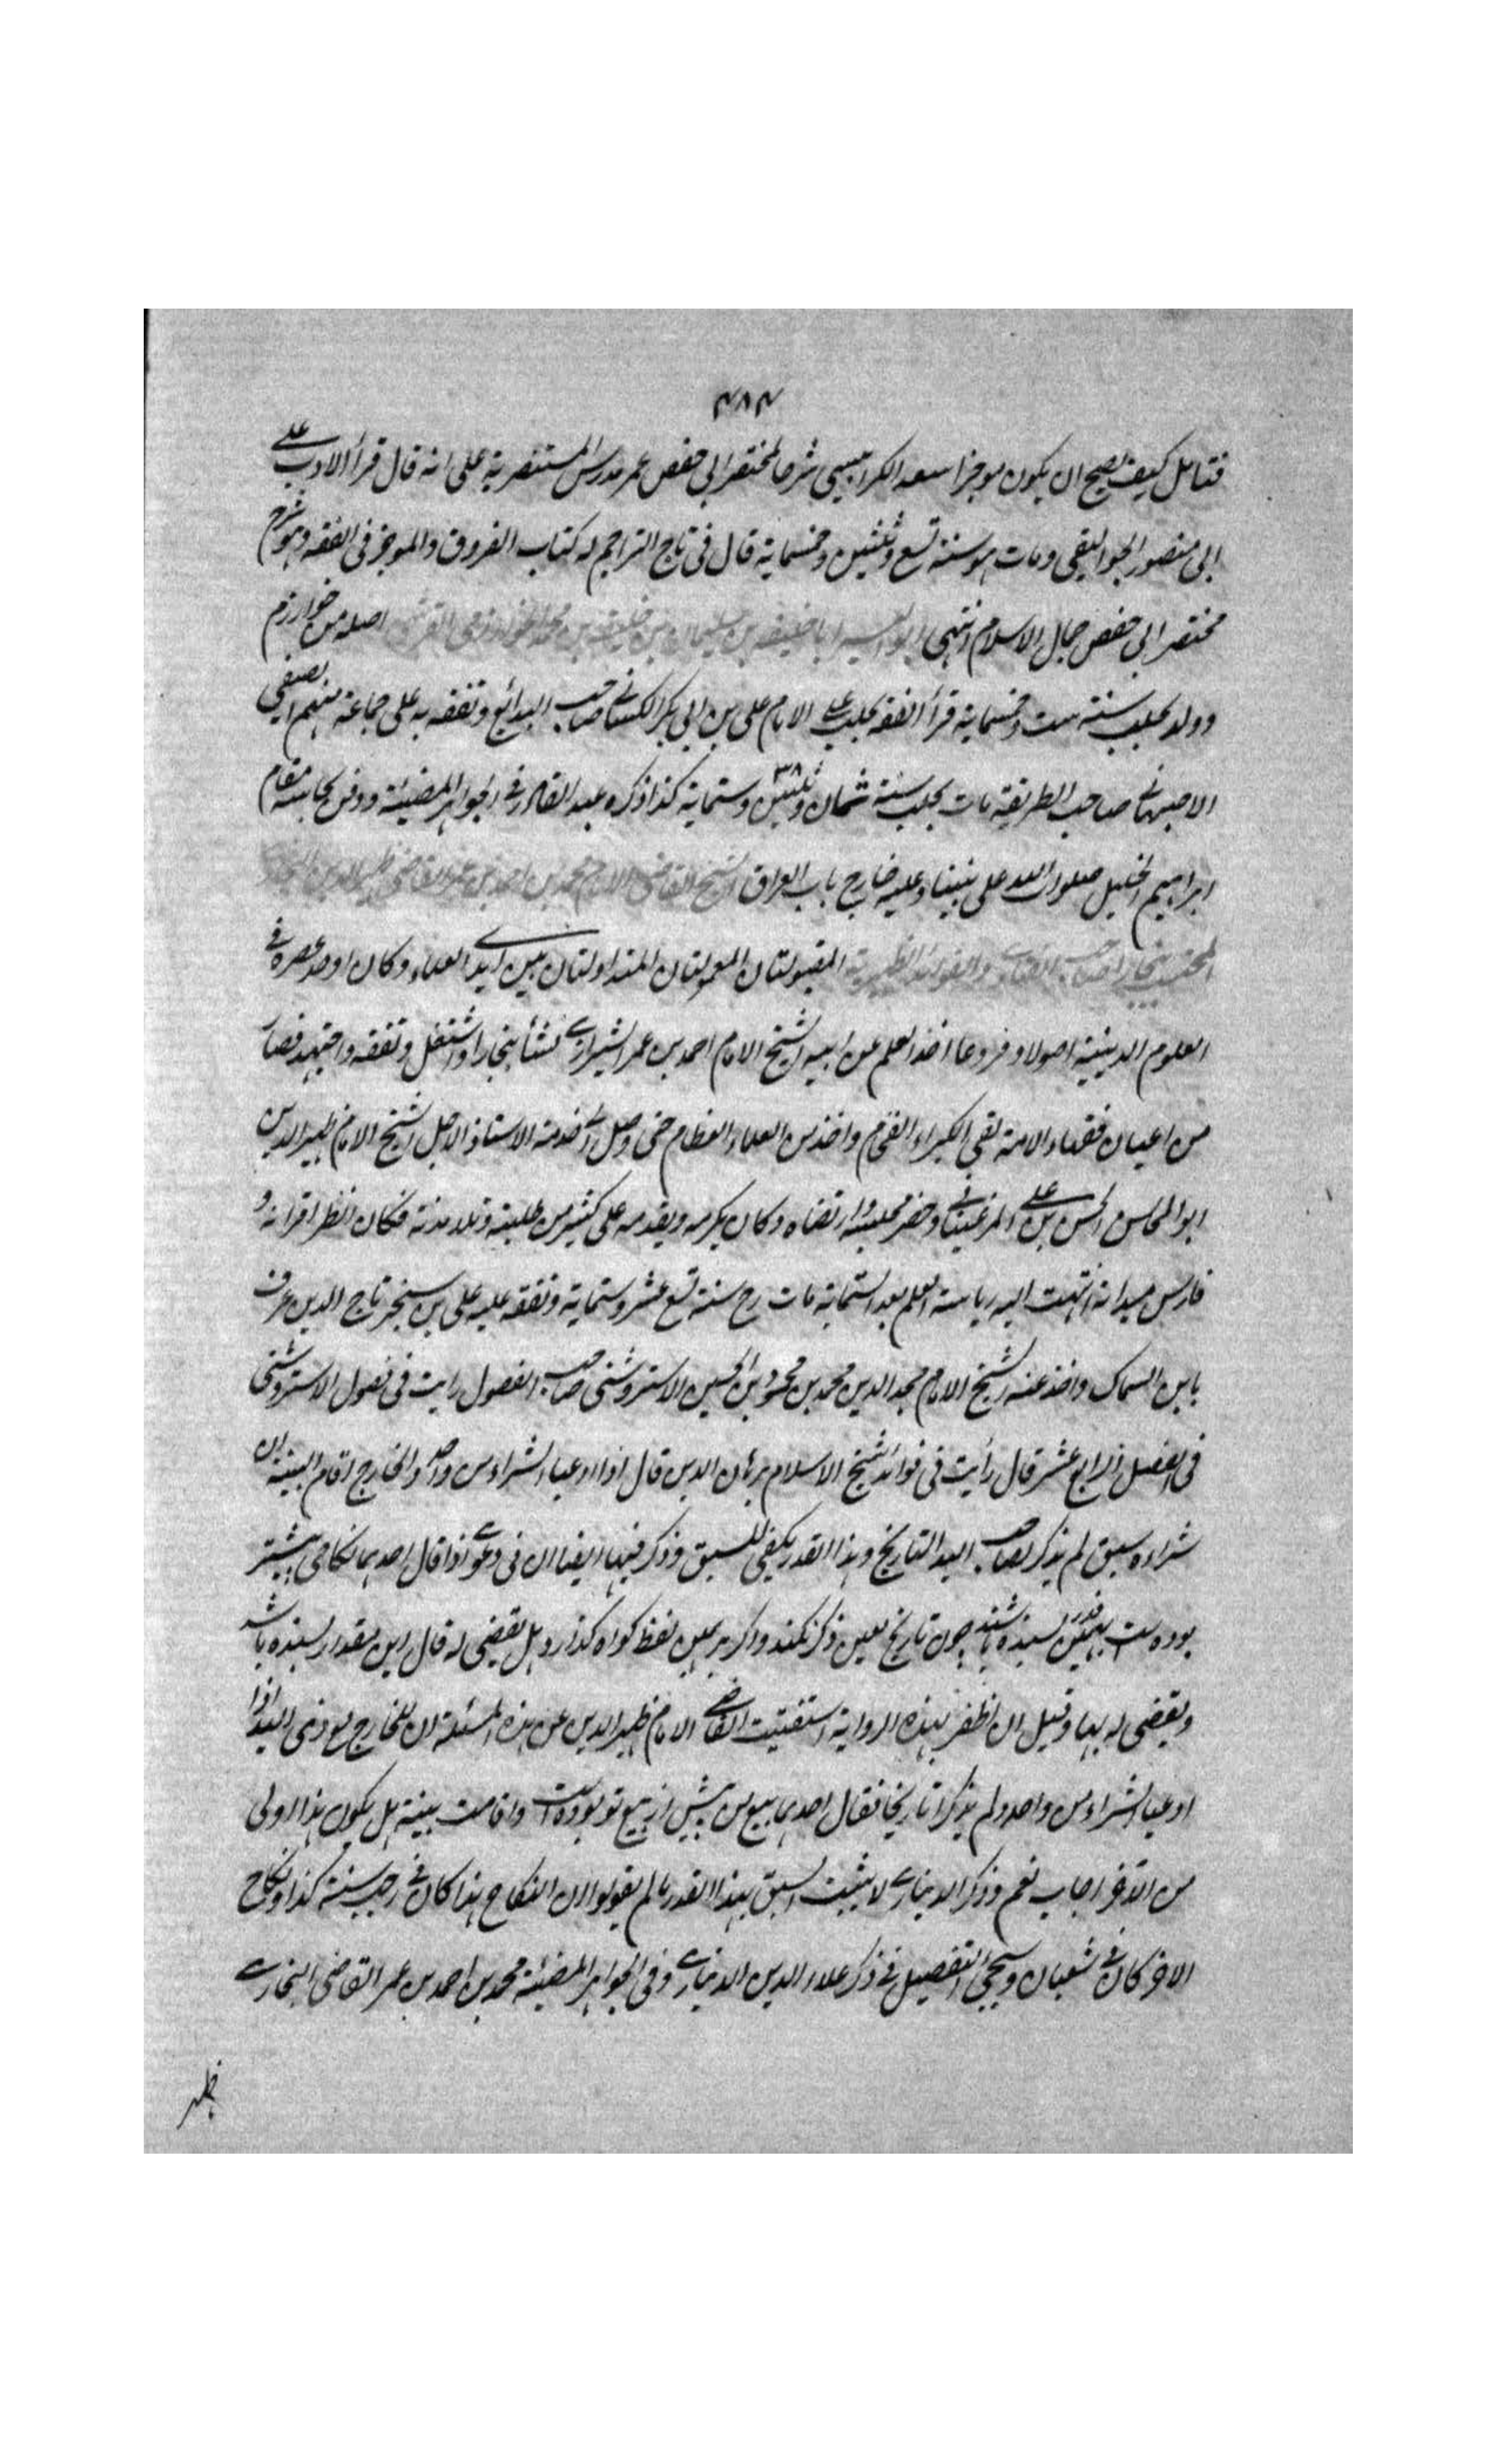 ۴۸۴
فتامل كيف يصح ان يكون موجز اسعد الكرابيسي شرحا لمختصر ابي حفص عمر مدرس المستنصرية على انه قال قرأ الادب على
ابي منصور الجواليقي ومات هو سنة تسع وثلثين وخمسماية قال في تاج التراجم له كتاب الفروق والموجز في الفقه وهو شرح
مختصر ابي حفص جمال الاسلام انتهى ابو السرايا خليفة بن سليمان بن خليفة بن محمد الخوارزمي القرشي اصله من خوارزم
وولد بحلب سنة ست وخمسماية قرأ الفقه بحلب على الامام علي بن ابي بكر الكساني صاحب البدائع وتفقه به على جماعة منهم الصفي
الاصبهاني صاحب الطريقة مات بحلب سنة ثمان وثلثين ۳۸ وستماية كذا ذكره عبد القادر في الجواهر المضيئة ودفن بجانبه مقام
ابراهيم الخليل صلوات الله على نبينا وعليه خارج باب العراق الشيخ القاضي الامام محمد بن احمد بن عمر القاضي ظهير الدين البخاري
المحتسب ببخارا صاحب الفتاوى والفوائد الظهيرية المقبولتان المعمولتان المتداولتان بين ايدي العلماء وكان اوحد عصره في
العلوم الدينية اصولا وفروعا اخذ العلم عن ابيه الشيخ الامام احمد بن عمر الشيرازي نشأ ببخارا واشتغل وتفقه واجتهد فصار
من اعيان فقهاء الامة لقي الكبراء الفخام واخذ من العلماء العظام حتى وصل الى خدمة الاستاذ الاجل الشيخ الامام ظهير الدين
ابو المحاسن الحسن بن على المرغيناني وحضر مجلسه وارتضاه وكان يكرمه ويقدمه على كثير من طلبته وتلامذته فكان انظر اقرانه و
فارس ميدانه انتهت اليه رياسة العلم بعد الستماية مات رح سنة تسع عشر وستماية وتفقه عليه علي بن سنجر تاج الدين عرف
بابن السماك واخذ عنه الشيخ الامام مجد الدين محمد بن محمود بن الحسين الاستروشني صاحب الفصول رايت في فصول الاستروشني
في الفصل الرابع عشر قال رأيت في فوائد شيخ الاسلام برهان الدين قال اذا ادعيا الشراء من واحد والخارج اقام البينة ان
شراه سبق لم يذكر لصاحب اليد التاريخ وهذا القدر يكفي للسبق وذكر فيها ايضا ان في دعوى اذا قال احدهما نكاحي پيشتر
بوده ست بهمين قدر بسنده باشد چون تاريخ معين ذكر نكند واكر بر همين لفظ كواه كذارد هل يقضى له قال اين مقدار بسنده باشد
ويقضى له بها وقيل ان اظفر بهذه الرواية استفتيت القاضي الامام ظهير الدين عن هذه المسئلة ان للخارج مع ذي اليد اذا
ادعيا الشراء من واحد ولم يذكرا تاريخا فقال احدهما بيع من پيش از بيع تو بوده است واقامت بينة هل يكون هذا اولى
من الاخر اجاب نعم وذكر الديناري لا يثبت السبق بهذا القدر ما لم يقولوا ان النكاح هذا كان في رجب سنة كذا ونكاح
الاخر كان في شعبان وسيجئ التفصيل في ذكر علاء الدين الديناري وفي الجواهر المضيئة محمد بن احمد بن عمر القاضي البخاري
ظهير